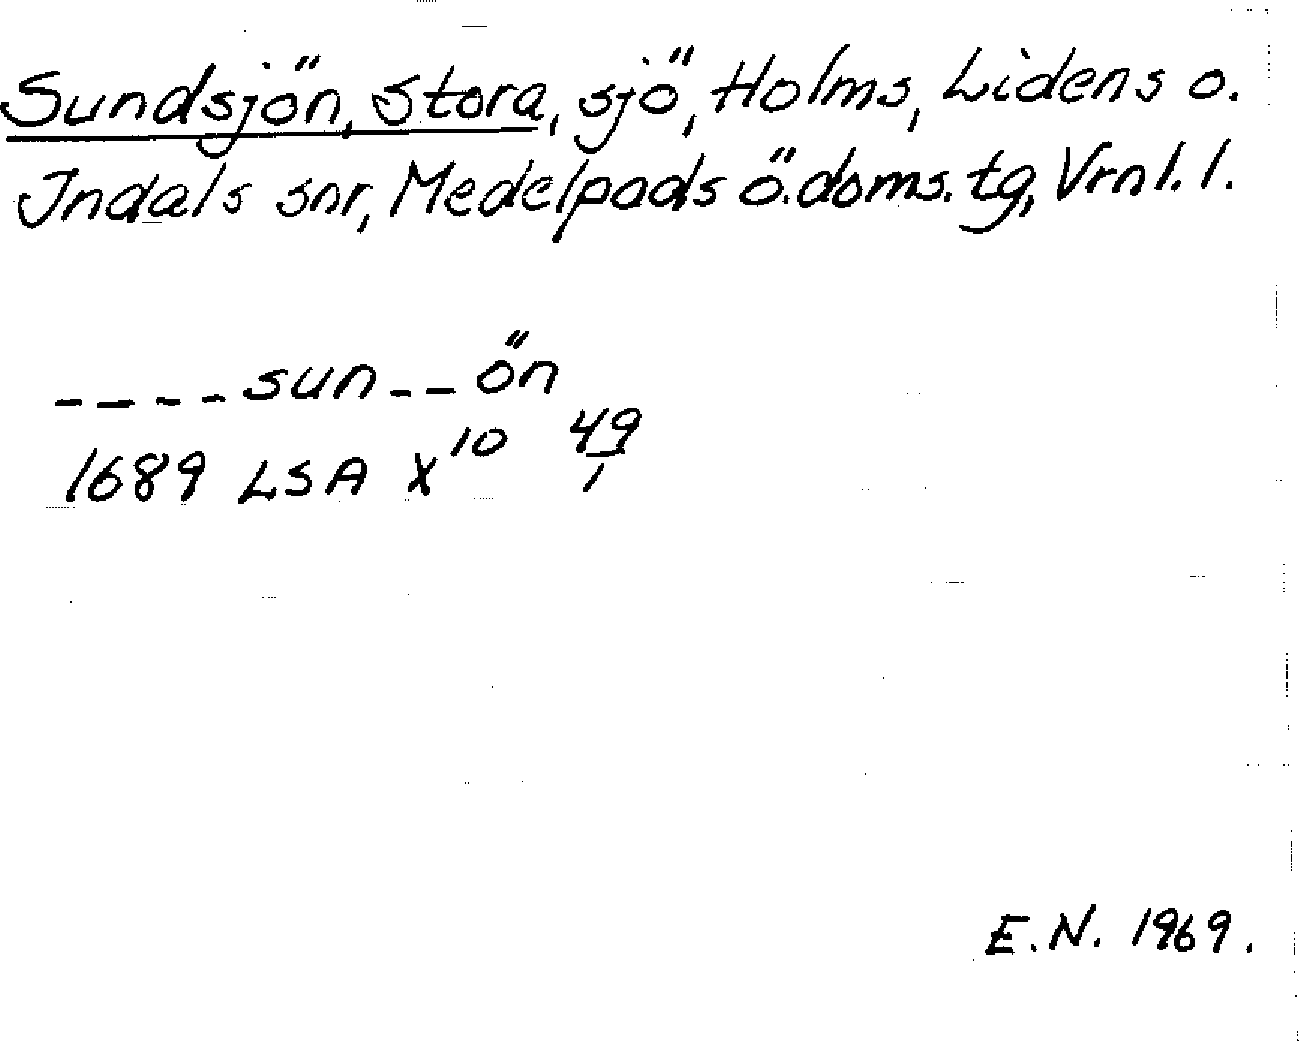 Sundsjön, Stora, sjö, Holms, Lidens o.
Indals snr, Medelpads ö. doms. tg, Vrnl. l.
----sun--ön
1689 LSA X¹⁰ 49/1
E.N. 1969.